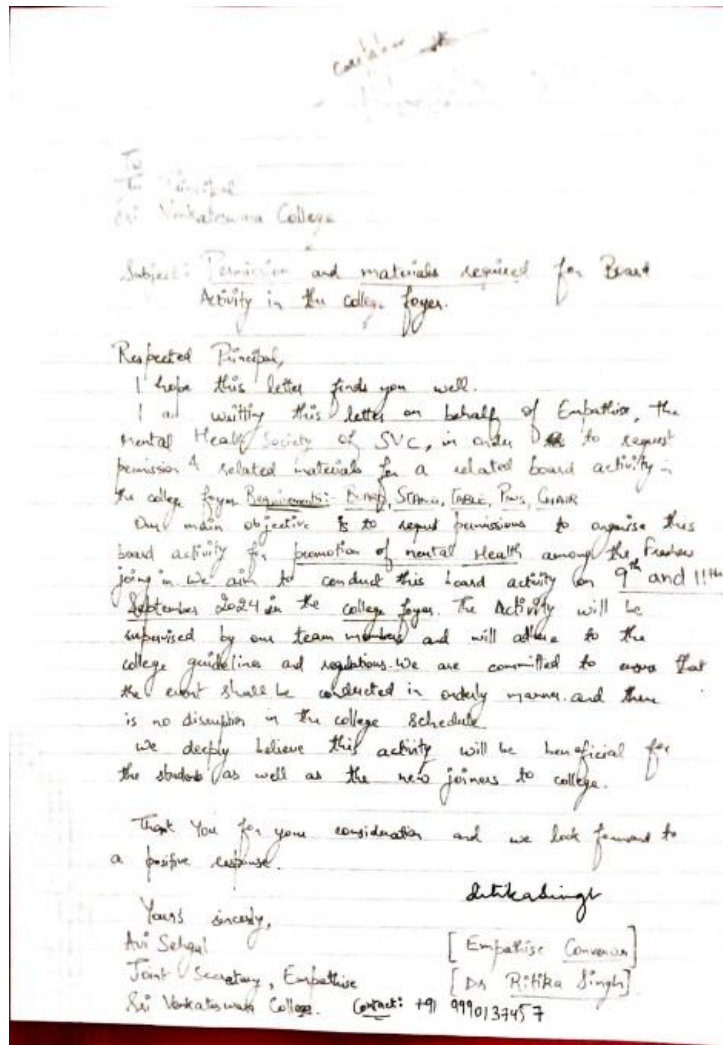 To
The Principal
Sri Venkateswara College
Subject: Permission and materials required for Board
Activity in the college foyer.
Respected Principal,
I hope this letter finds you well.
I a writting this letter on behalf of Empathise, the
Mental Health Society of SVC, in order to request
permission & related materials for a related board activity in
the college foyer Requirements:- BOARD, STAND, TABLE, PINS, CHAIR
Our main objective is to request permissions to organise this
board activity for promotion of mental Health among the Freshers
joining in. We aim to conduct this board activity on 9th and 11th
September 2024 in the college foyer. The Activity will be
supervised by our team members and will adhere to the
college guidelines and regulations. We are committed to ensure that
the event shall be conducted in orderly manner. and there
is no disruption in the college schedule
We deeply believe this activity will be beneficial for
the students as well as the new joiners to college.
Thank You for your consideration and we look forward to
a positive response.
Yours sincerely,
Avi Sehgal
Joint Secretary, Empathise
Sri Venkateswara College. Contact: +91 9990137457
ritikasingh
[Empathise Convenor]
[Dr Ritika Singh]